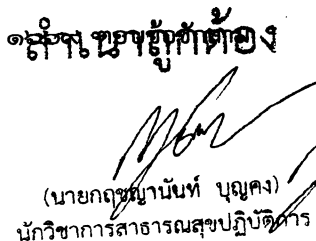 สำเนาถูกต้อง
(นายกฤชญานันท์ บุญคง)
นักวิชาการสาธารณสุขปฏิบัติการ